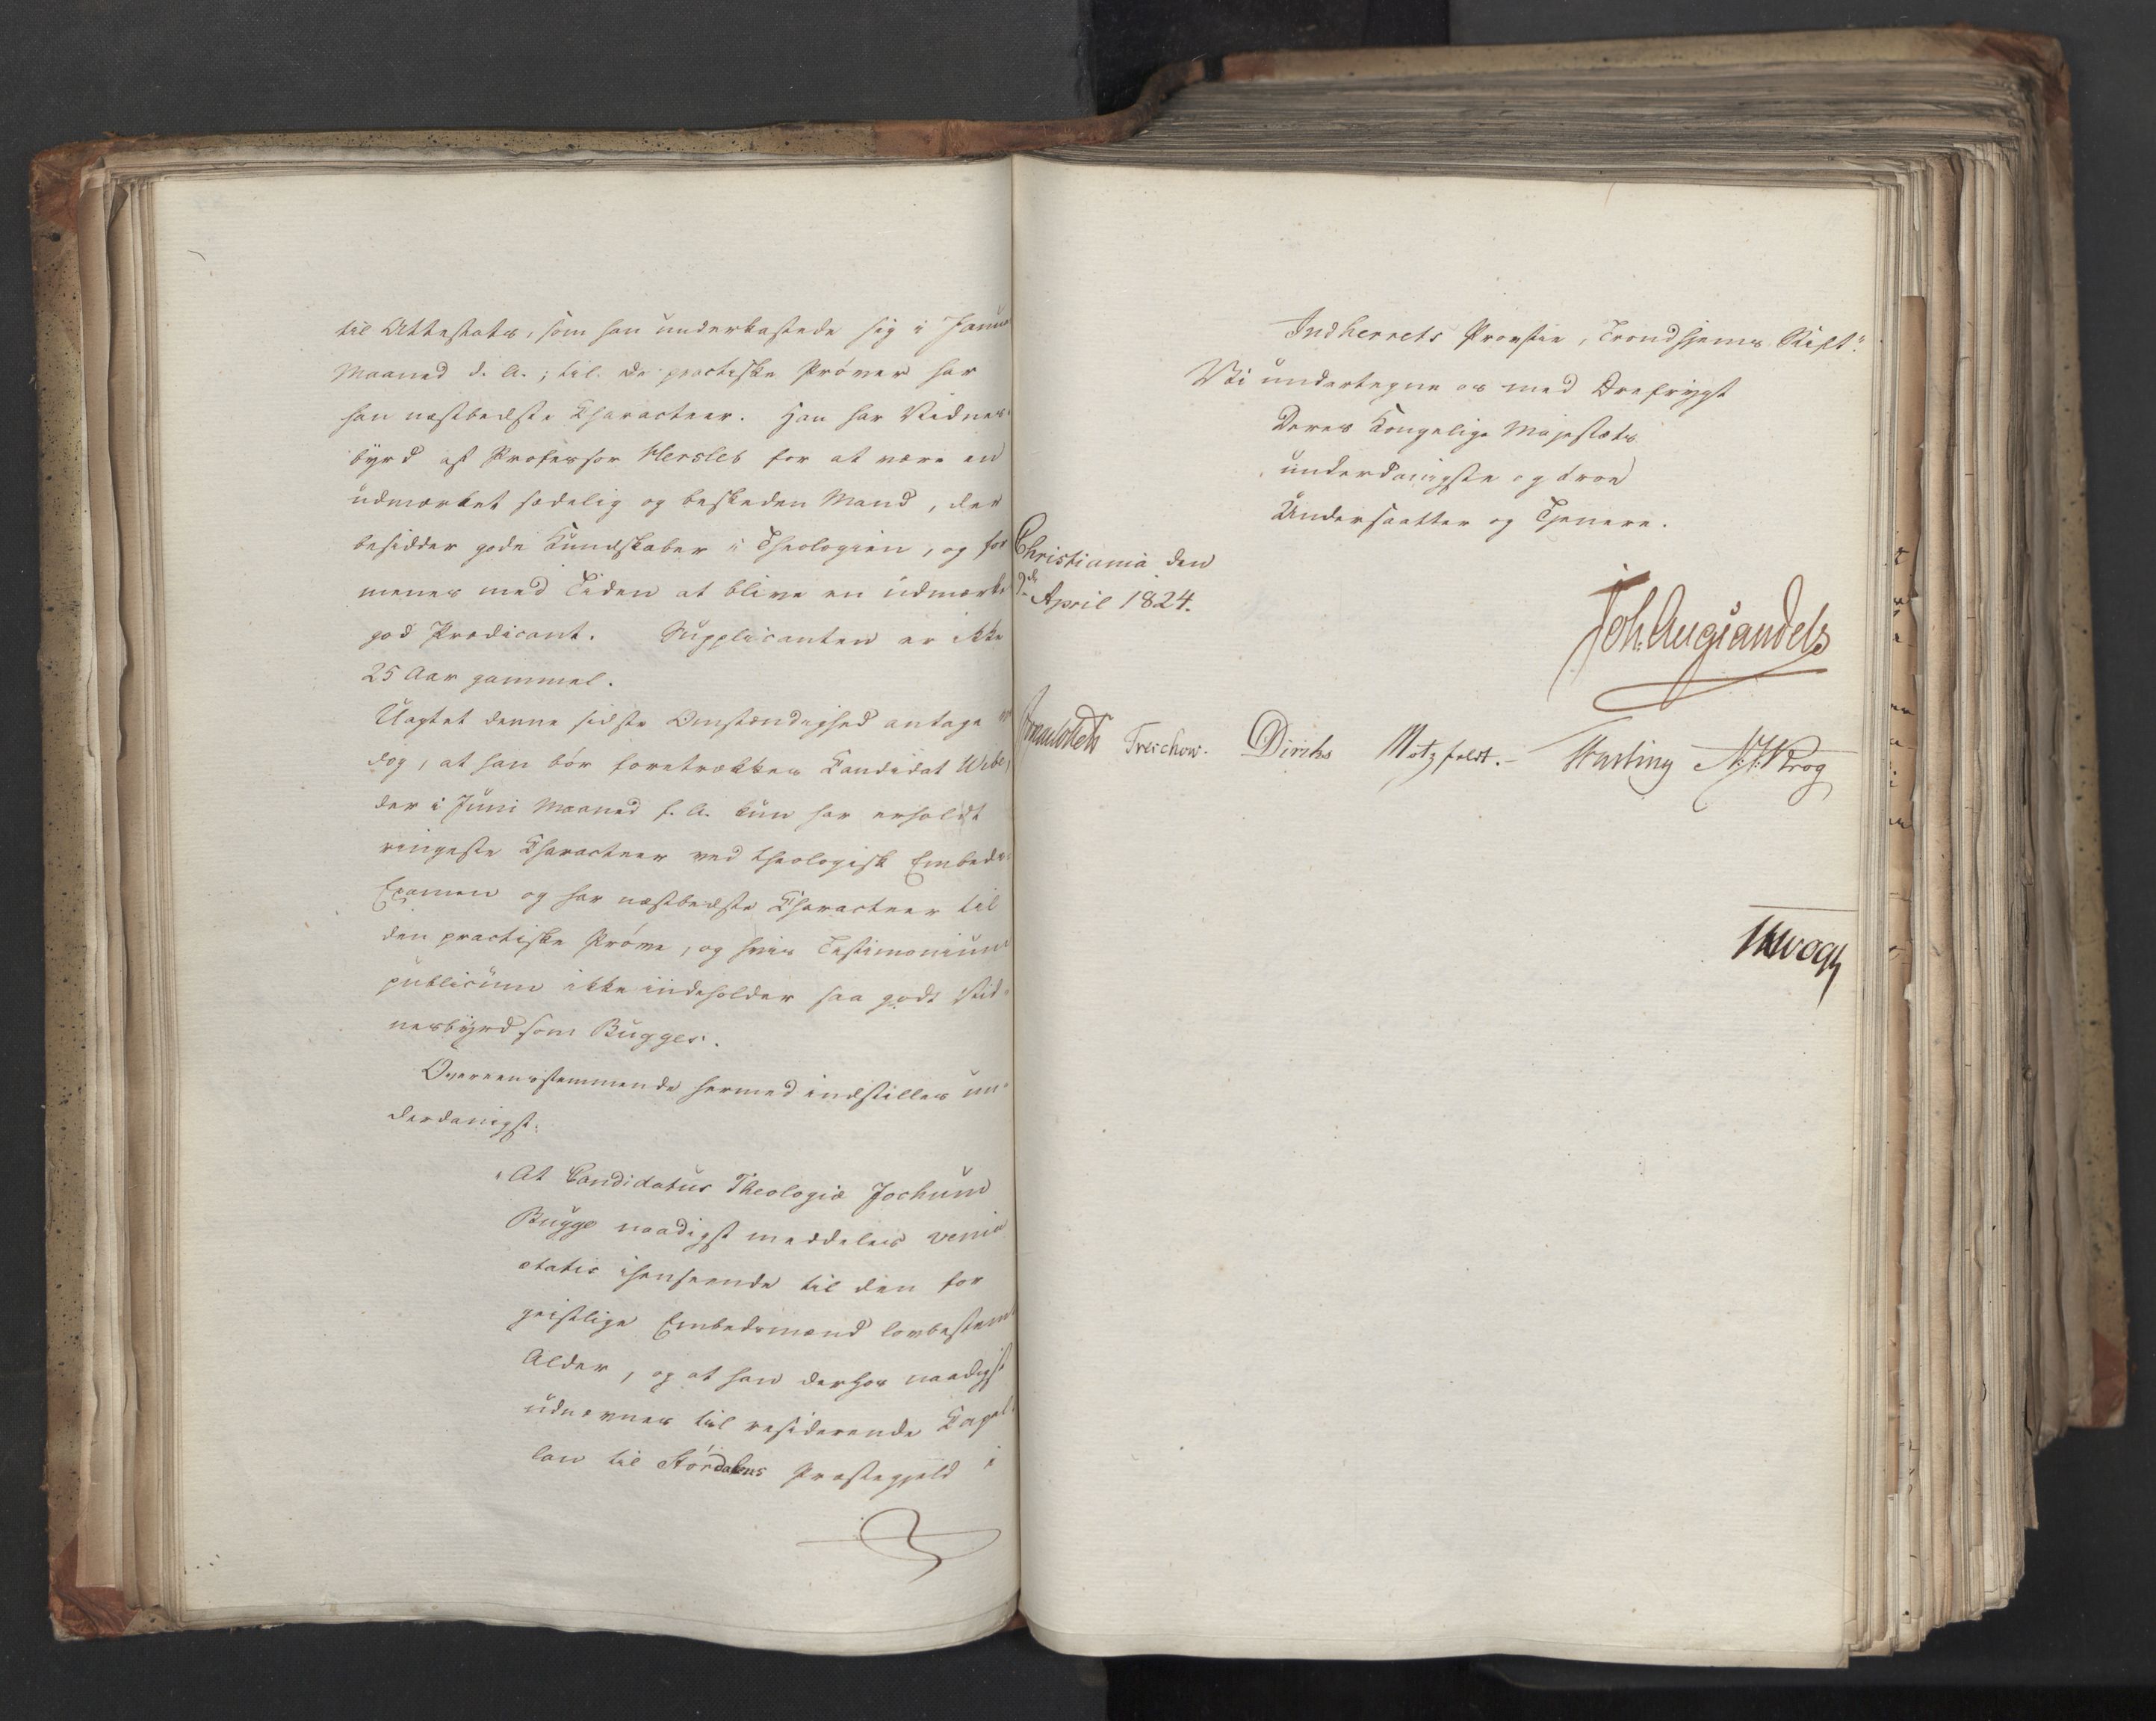 til Attestats, som han underkastede sig i Januar
Maaned d. A.; til de practiske Prøver har
han næstbedste Characteer. Han har Vidnes-
byrd af Professor Hersleb for at være en
udmærket sædelig og beskeden Mand, der
besidder gode Kundskaber i Theologien, og for
menes med Tiden at blive en udmærket
god Prædicant. Supplicanten er ikke
25 Aar gammel.
Uagtet denne sidste Omstændighed antage vi
dog, at han bør foretrækkes Candidat Wibe,
der i Juni Maaned f. A. kun har erholdt
ringeste Characteer ved theologisk Embeds-
Examen og har næstbedste Characteer til
den practiske Prøve, og hvis Testimonium
publicum ikke indeholder saa godt Vid-
nesbyrd som Bugges.
Overeensstemmende hermed indstilles un-
derdanigst:
"At Candidatus Theologiæ Jochum
Bugge naadigst meddeles venia
ætatis ihenseende til den for
geistlige Embedsmænd lovbestemte
Alder, og at han derhos naadigst
udnævnes til residerende Capel-
lan til Størdalens Præstegjeld i
Indherrets Provstie, Trondhjems Stift."
Vi undertegne os med Ærefrygt
Deres Kongelige Majestæts
underdanigste og troe
Undersaatter og Tjenere.
Christiania den
9de April 1824.
Joh: Aug: Sandels
Treschow. Diriks Motzfeldt. Fasting N: J: Krog
Vogt